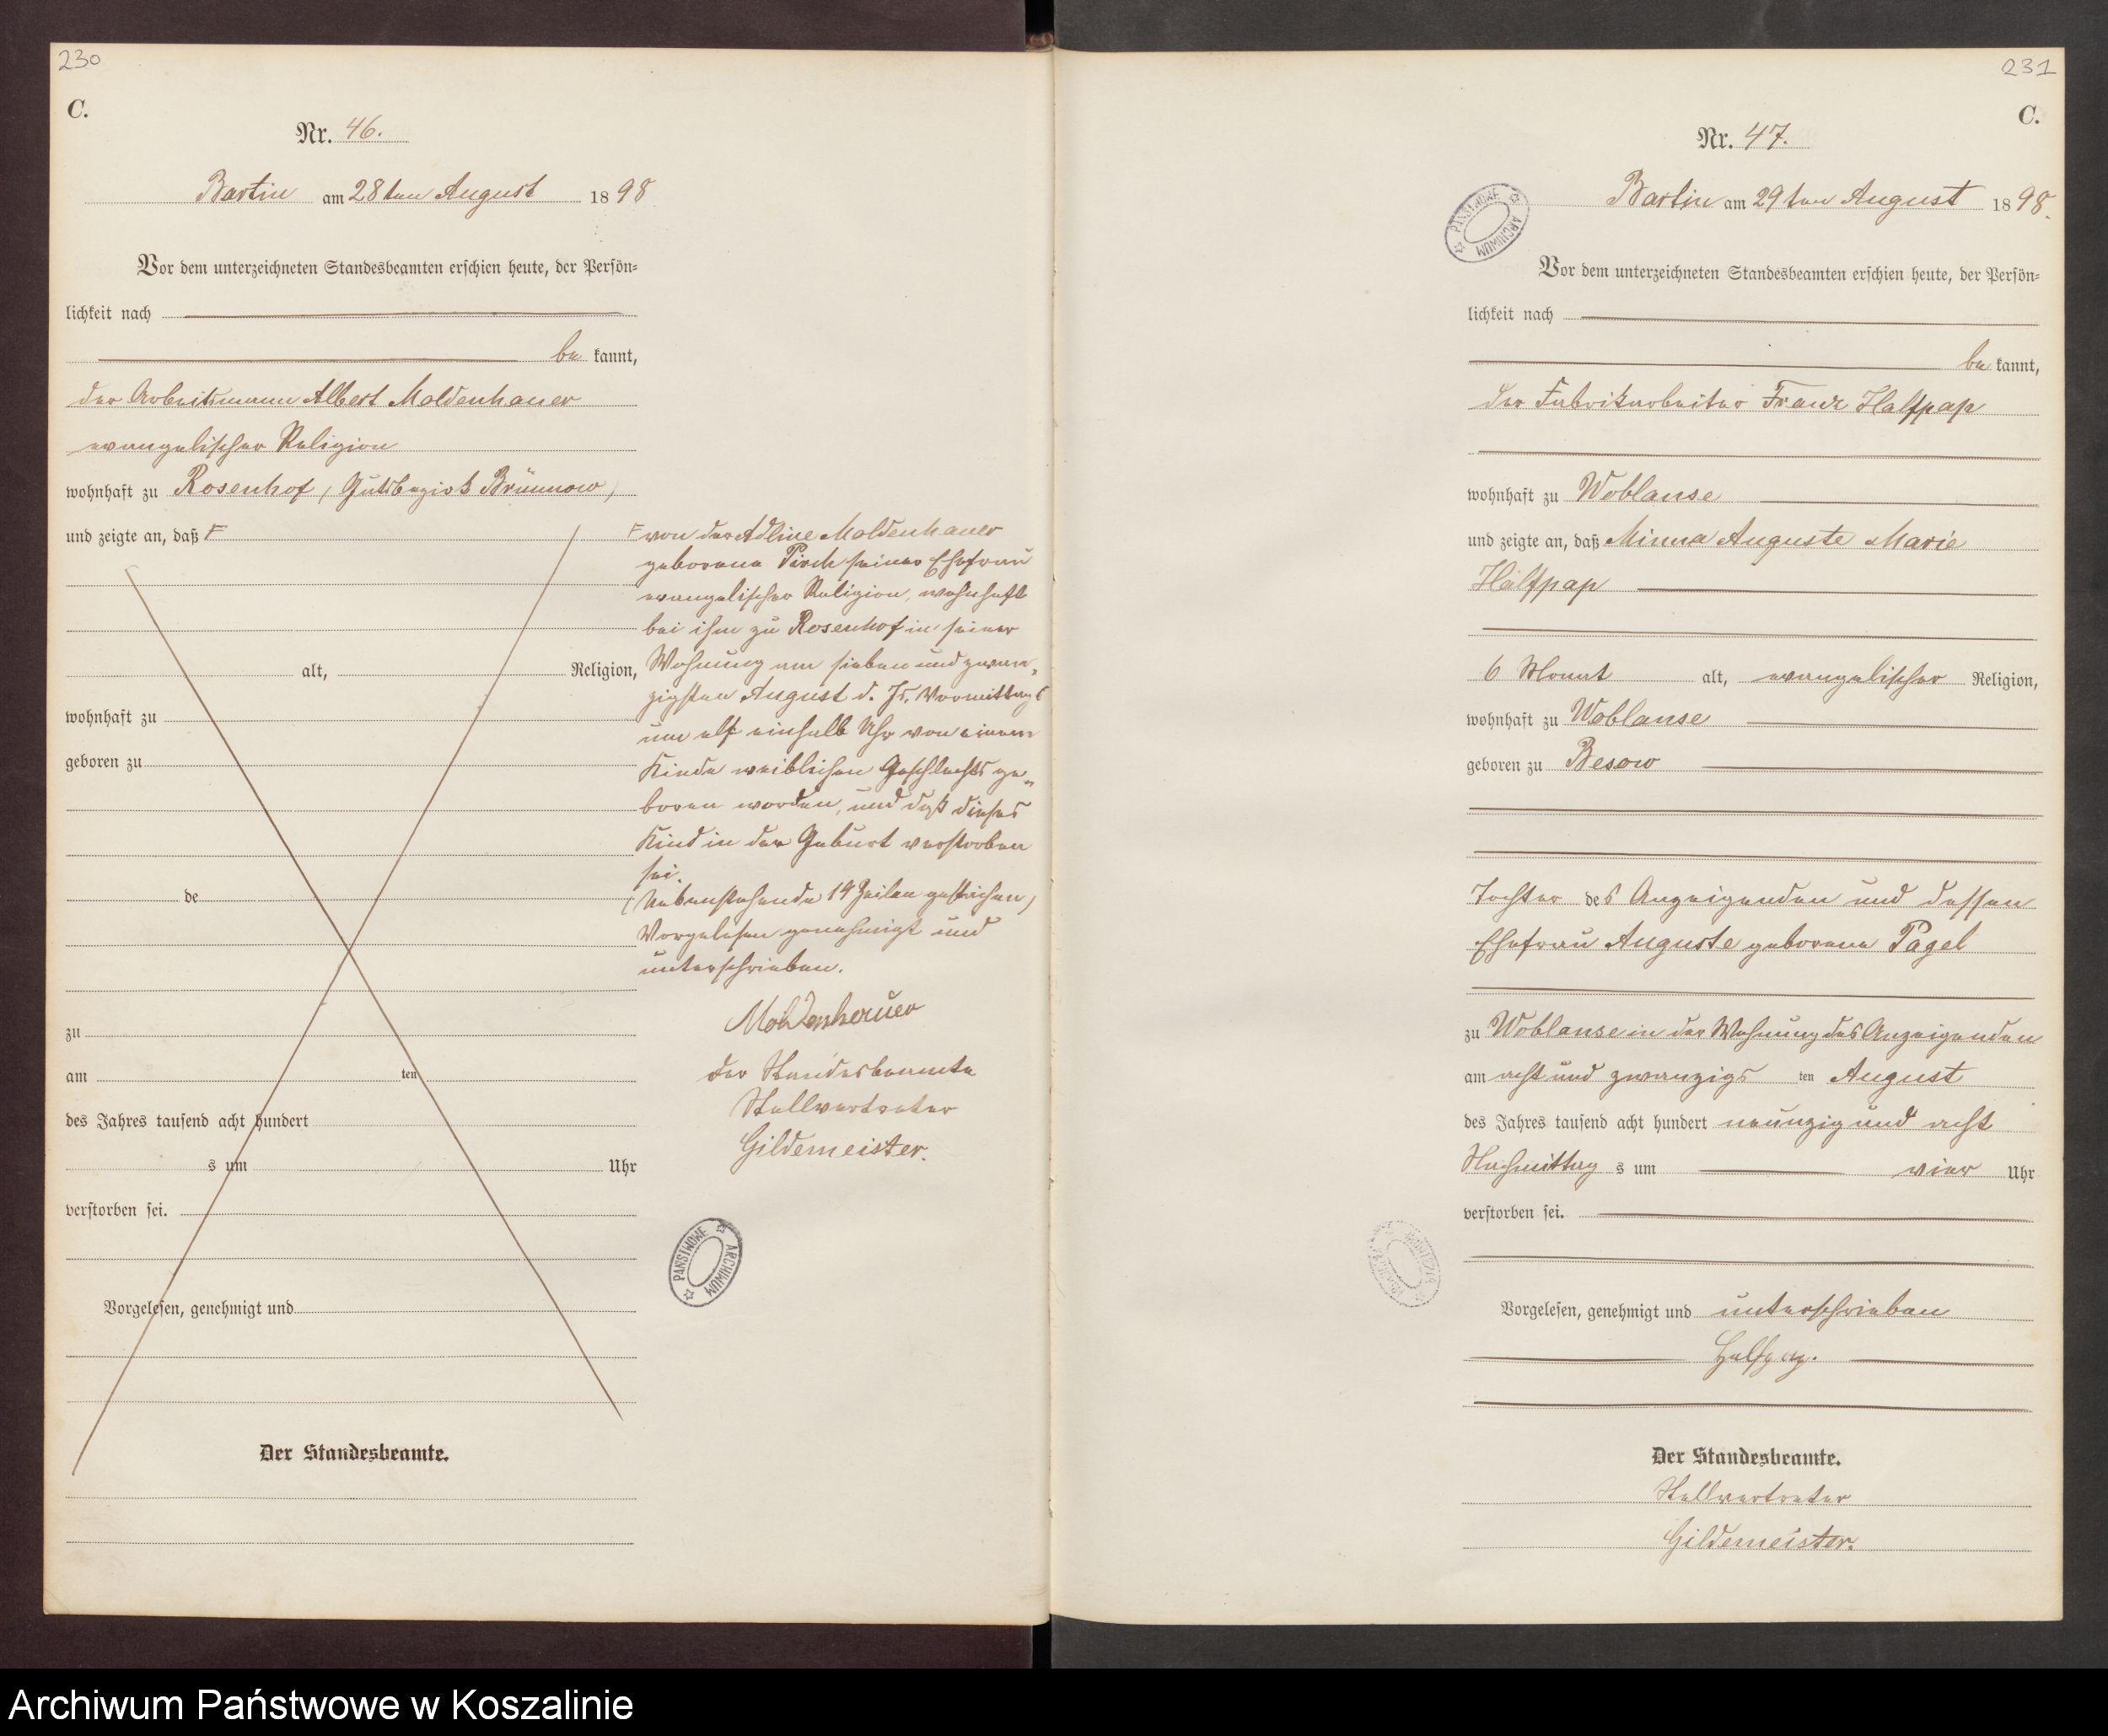 230
C.
Nr. 46.
Bartin am 28ten August 1898
Vor dem unterzeichneten Standesbeamten erschien heute, der Persön=
lichkeit nach
be kannt,
der Arbeitsmann Albert Moldenhauer
evangelischer Religion
wohnhaft zu Rosenhof, Gutsbezirk Brünnow,
und zeigte an, daß F
alt, Religion,
wohnhaft zu
geboren zu
de
zu
am ten
des Jahres tausend acht hundert
s um Uhr
verstorben sei.
Vorgelesen, genehmigt und
Der Standesbeamte.
F von der Adline Moldenhauer
geborene Pirch seiner Ehefrau
evangelischer Religion, wohnhaft
bei ihm zu Rosenhof in seiner
Wohnung am sieben und zwan=
zigsten August d. Js. Vormittags
um elf einhalb Uhr von einem
Kinde weiblichen Geschlechts ge=
boren worden, und daß dieses
Kind in der Geburt verstorben
sei.
(Nebenstehende 14 Zeilen gestrichen)
Vorgelesen genehmigt und
unterschrieben.
Moldenhauer
Der Standesbeamte
Stellvertreter
Gildemeister.
PAŃSTWOWE ARCHIWUM
231
C.
Nr. 47.
PAŃSTWOWE ARCHIWUM
Bartin am 29ten August 1898.
Vor dem unterzeichneten Standesbeamten erschien heute, der Persön=
lichkeit nach
be kannt,
der Fabrikarbeiter Franz Halfpap
wohnhaft zu Woblanse
und zeigte an, daß Minna Auguste Marie
Halfpap
6 Monat alt, evangelischer Religion,
wohnhaft zu Woblanse
geboren zu Besow
Tochter des Anzeigenden und dessen
Ehefrau Auguste geborene Pagel
zu Woblanse in der Wohnung des Anzeigenden
am acht und zwanzigs ten August
des Jahres tausend acht hundert neunzig und acht
Nachmittag s um vier Uhr
verstorben sei.
Vorgelesen, genehmigt und unterschrieben
Halfpap.
Der Standesbeamte.
Stellvertreter
Gildemeister.
Archiwum Państwowe w Koszalinie